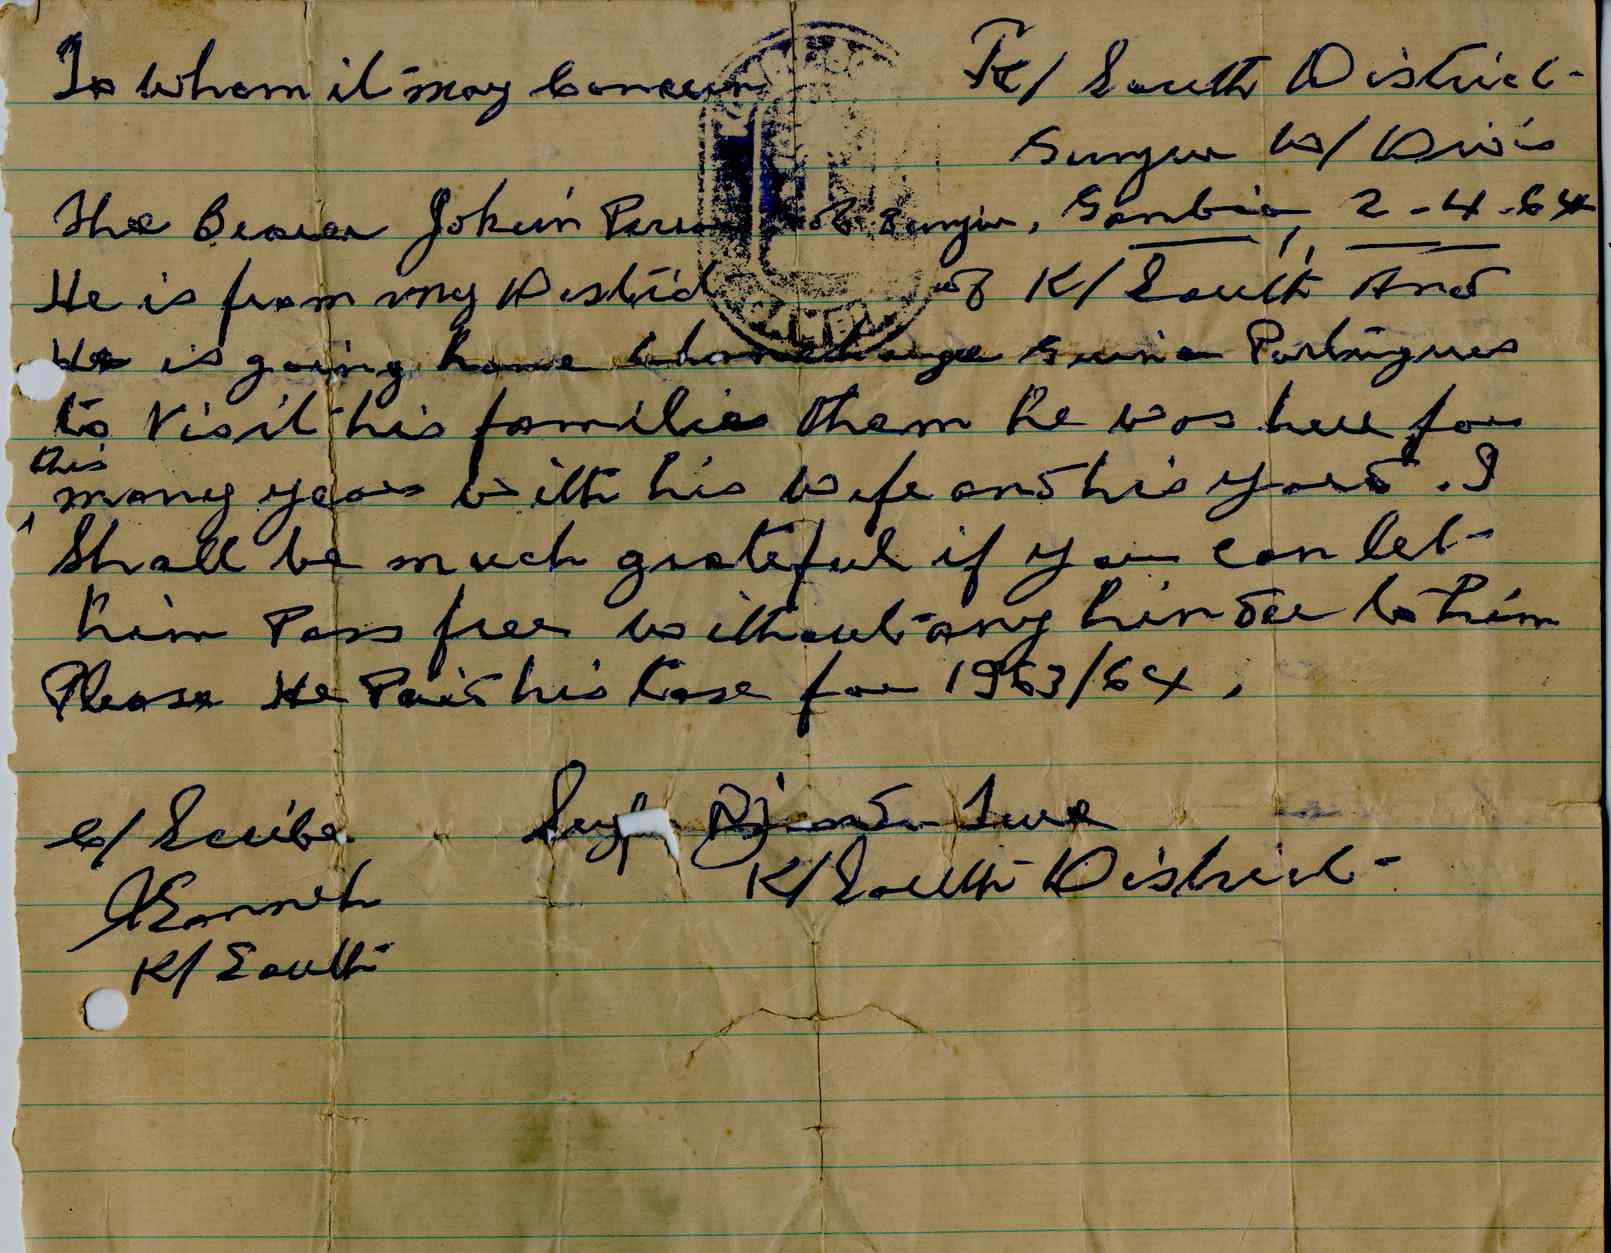 To whom it may Concern
K/ South District
Gunjur W/ Divis
Gambia, 2-4-64
The Bearer Jokin of Gunjur,
He is from my District of K/ South And
He is going home Guine Portugues
to Visit his families them he was here for
this
many years with his wife and his yard. I
Shall be much grateful if you can let
him Pass free without any hinder to him
Please He Paid his taxe for 1963/64,
c/ Scribe
K/ South
K/ South District